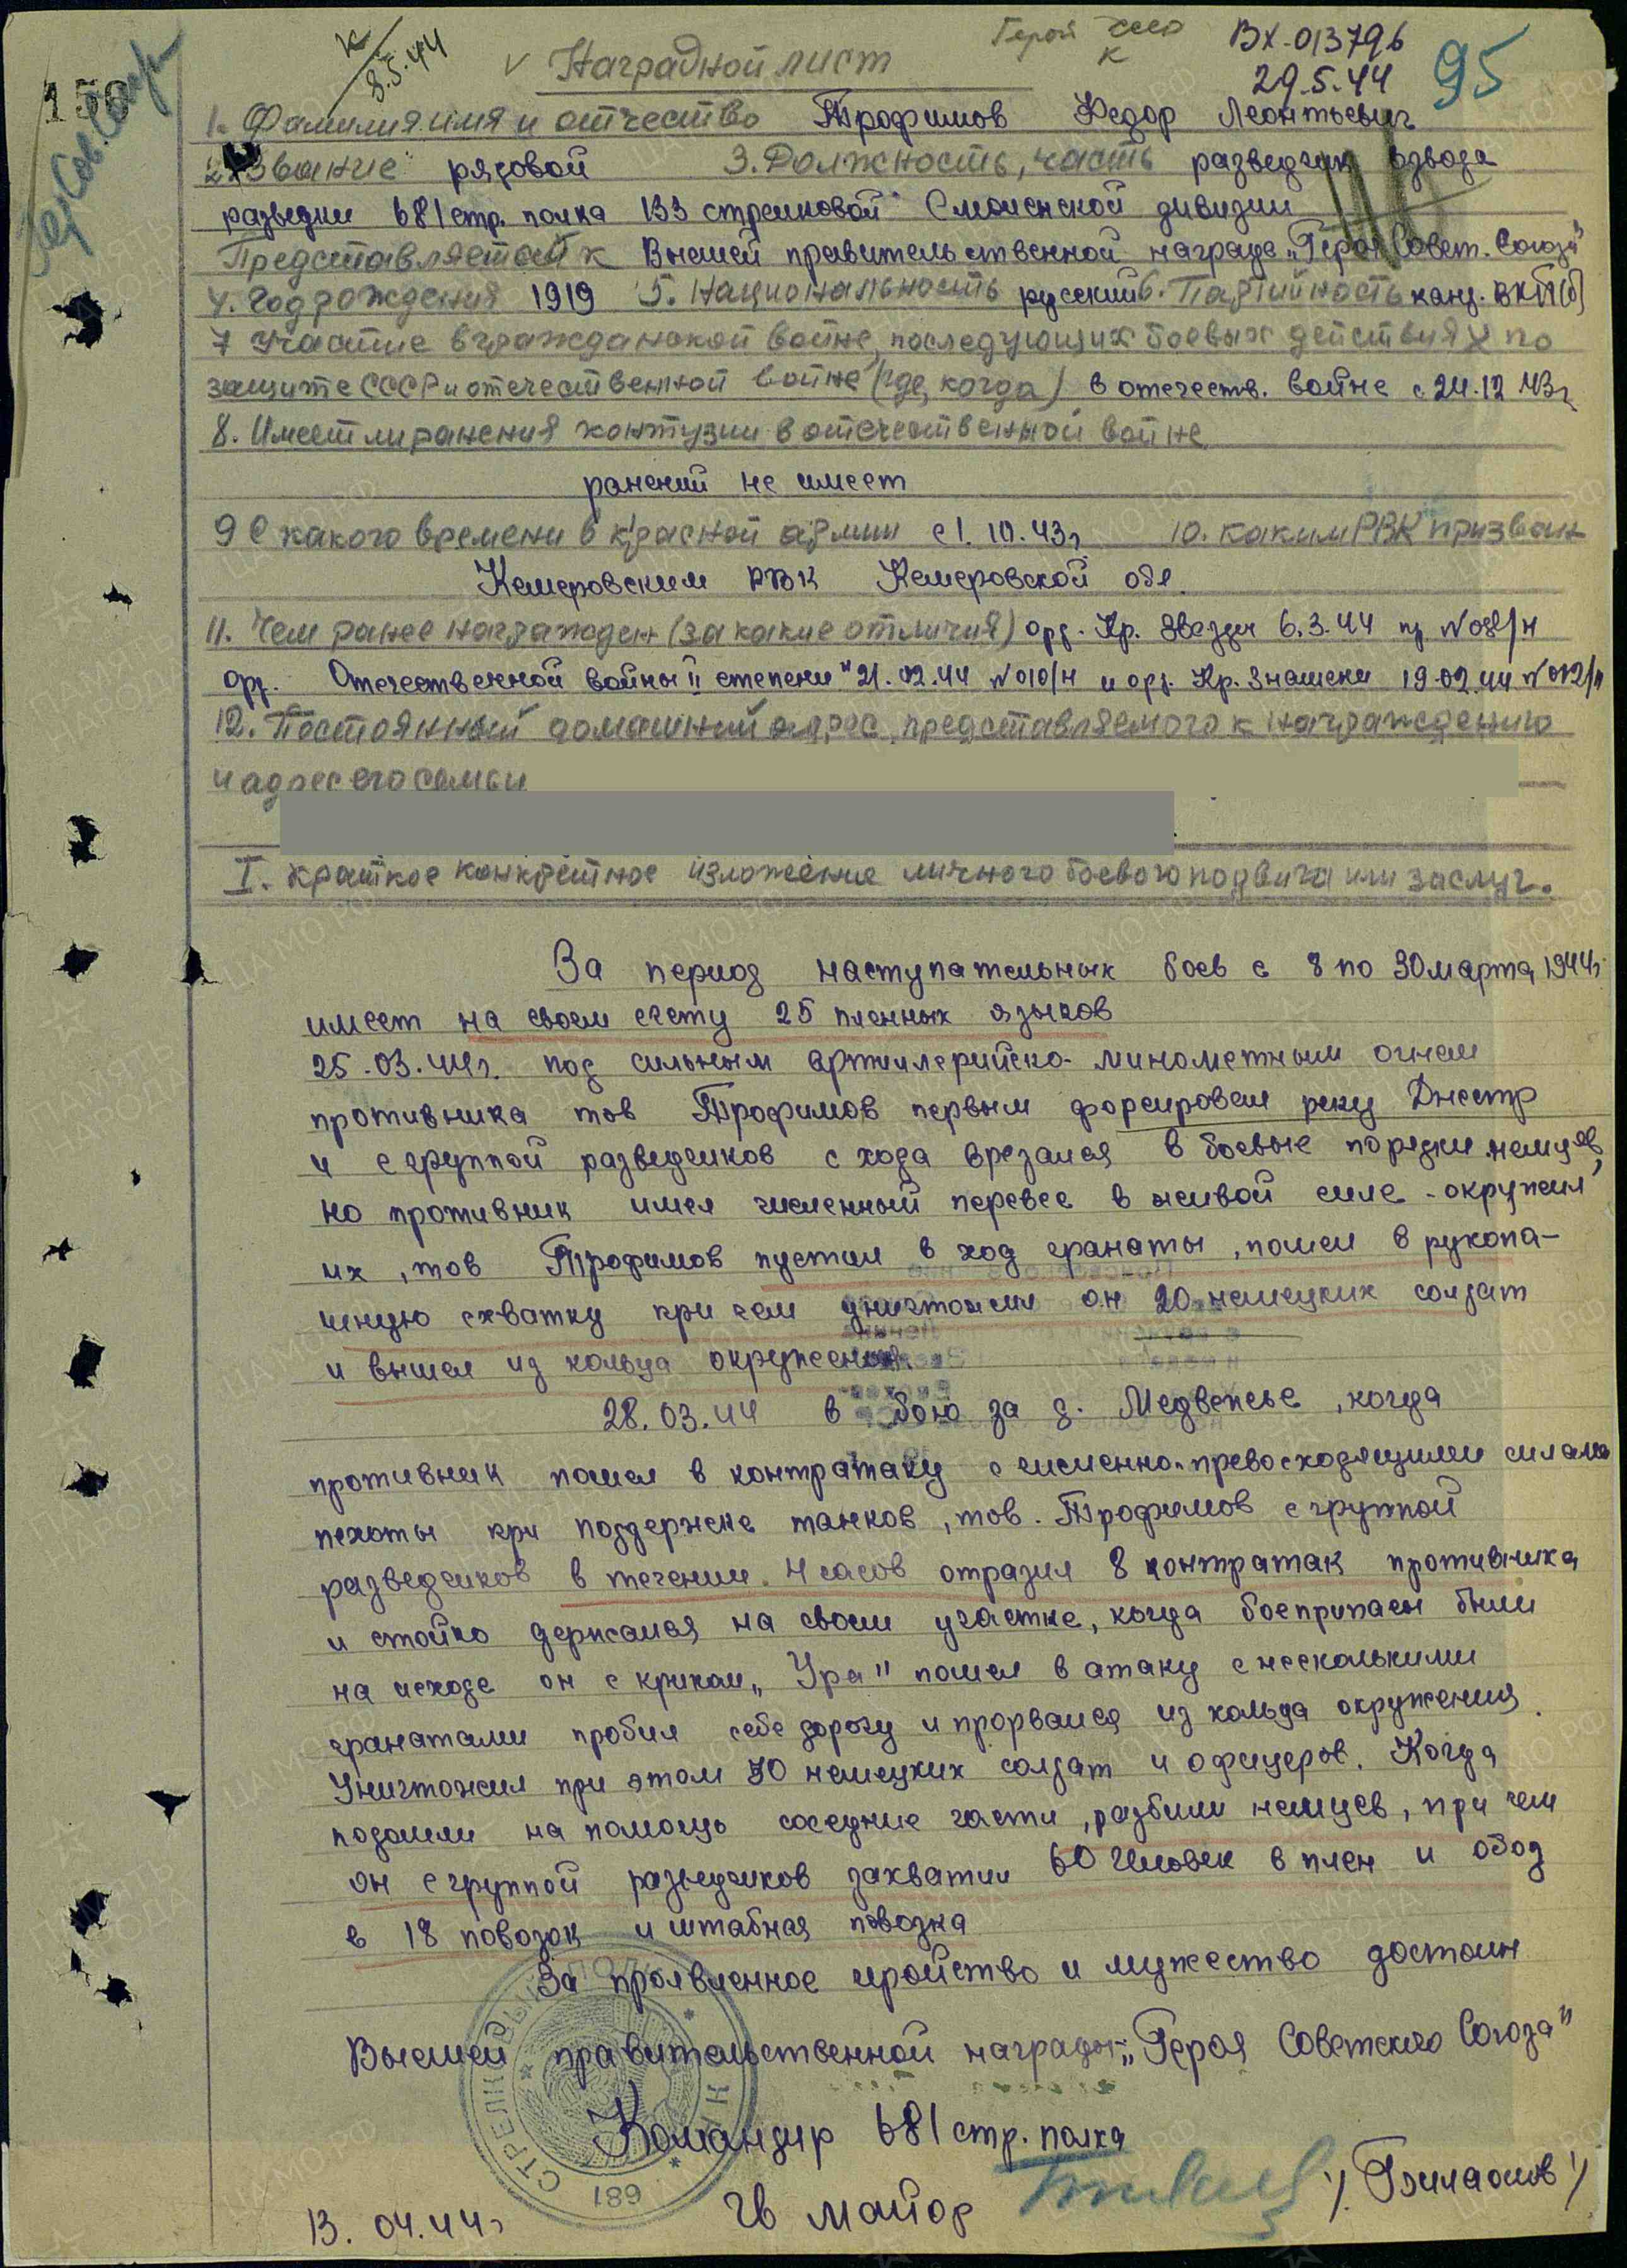 Герой
К
Вх-013796
29.5.44
95
К
8.5.44
150
Гер. Сов. Союза
V Наградной лист
1. Фамилия имя и отчество Трофимов Федор Леонтьевич
2. Звание рядовой 3. Должность, часть разведчик взвода
разведки 681 стр. полка 133 стрелковой Смоленской дивизии
Представляется к Высшей правительственной награде „Герой Совет. Союза"
4. Год рождения 1919 5. Национальность русский 6. Партийность канд. ВКП(б)
7 Участие в гражданской войне, последующих боевых действиях по
защите СССР и отечественной войне (где, когда) в отечеств. войне с 24.12 43г
8. Имеет ли ранения контузии в отечественной войне
ранений не имеет
9 С какого времени в красной армии с 1.10.43г 10. каким РВК призван
Кемеровским РВК Кемеровской обл.
11. Чем ранее награжден (за какие отличия) орд. Кр. Звезды 6.3.44 пр N038/н
орд. Отечественной войны II степени" 21.02.44 N010/н и орд. Кр. Знамени 19.02.44 N012/н
12. Постоянный домашний адрес, представляемого к награждению
и адрес его семьи
I. Краткое конкретное изложение личного боевого подвига или заслуг.
За период наступательных боев с 8 по 30 марта 1944г
имеет на своем счету 25 пленных языков
25.03.44г. под сильным артиллерийско-минометным огнем
противника тов Трофимов первым форсировал реку Днестр
и с группой разведчиков с хода врезался в боевые порядки немцев,
но противник имея численный перевес в живой силе - окружил
их, тов Трофимов пустил в ход гранаты, пошел в рукопа-
шную схватку при чем уничтожил он 20 немецких солдат
и вышел из кольца окружения.
28.03.44 в бою за д. Медвежье, когда
противник пошел в контратаку с численно-превосходящими силами
пехоты при поддержке танков, тов. Трофимов с группой
разведчиков в течении 4 часов отразил 8 контратак противника
и стойко держался на своем участке, когда боеприпасы были
на исходе он с криком „Ура" пошел в атаку с несколькими
гранатами пробил себе дорогу и прорвался из кольца окружения.
Уничтожил при этом 30 немецких солдат и офицеров. Когда
подошли на помощь соседние части, разбили немцев, при чем
он с группой разведчиков захватил 60 человек в плен и обоз
в 18 повозок и штабная повозка
За проявленное геройство и мужество достоин
Высшей правительственной награды „Героя Советского Союза"
Командир 681 стр. полка
Гв майор /Билаонов/
13.04.44г
СТРЕЛКОВЫЙ ПОЛК
681